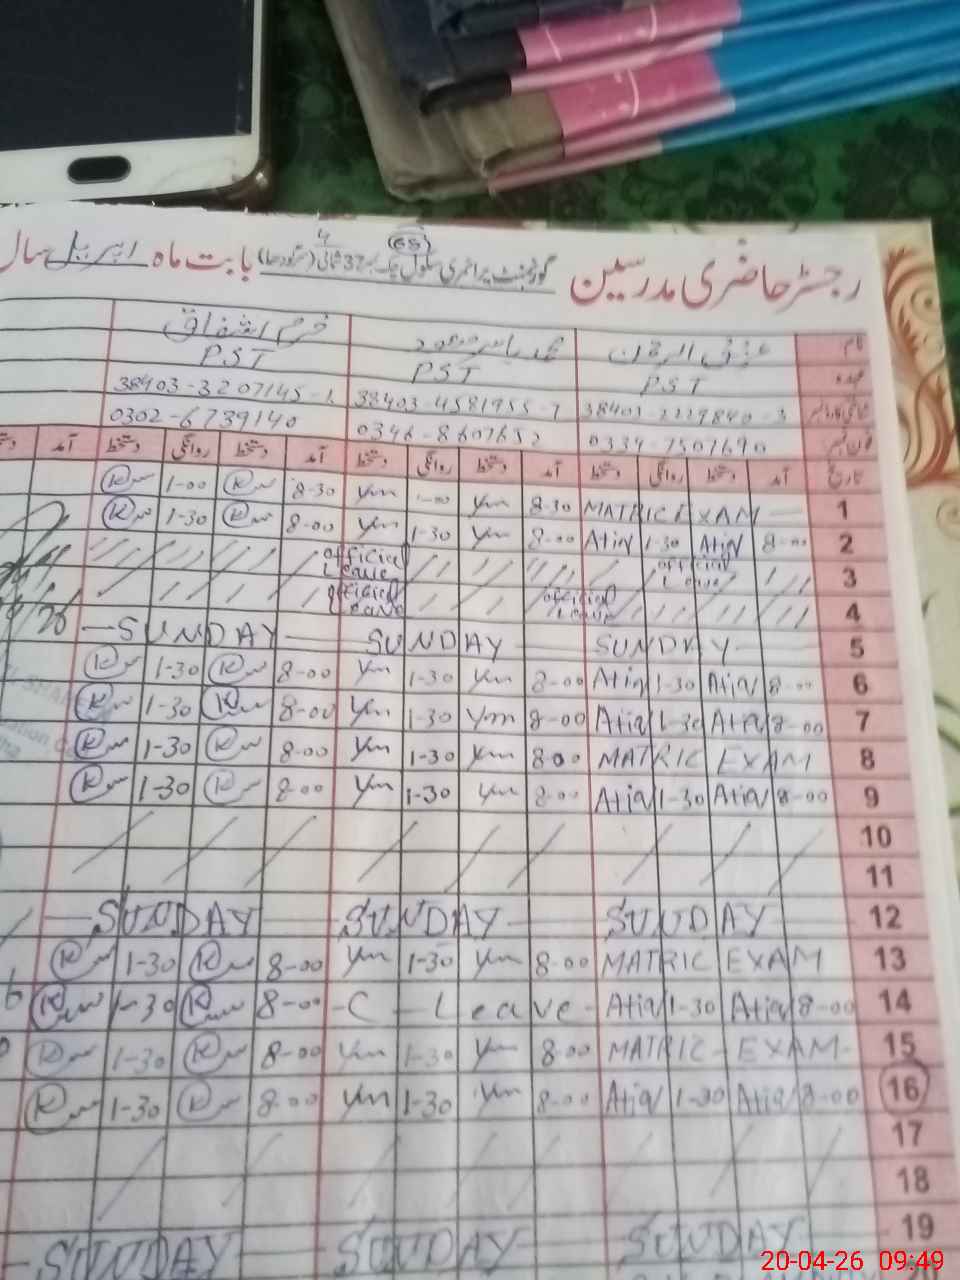 رجسٹر حاضری مدرسین گورنمنٹ پرائمری سکول چک نمبر 37 شمالی (سرگودھا) بابت ماہ اپریل سال
نام محمد یاسر محمود خرم اشفاق
عہدہ PST PST PST
38403-2229840-3 38403-4581955-7 38403-3207145-1
فون نمبر 0334-7507690 0346-8607652 0302-6739140
تاریخ آمد دستخط روانگی دستخط آمد دستخط روانگی دستخط آمد دستخط روانگی دستخط آمد
1 MATRIC EXAM 8-30 Ym 1-00 Ym 8-30 K 1-00 K
2 8-00 Atiq 1-30 Atiq 8-00 Ym 1-30 Ym 8-00 K 1-30 K
3 official Leave official Leave
4 official Leave official Leave
5 SUNDAY SUNDAY SUNDAY
6 8-00 Atiq 1-30 Atiq 8-00 Ym 1-30 Ym 8-00 K 1-30 K
7 8-00 Atiq 1-30 Atiq 8-00 Ym 1-30 Ym 8-00 K 1-30 K
8 MATRIC EXAM 8-00 Ym 1-30 Ym 8-00 K 1-30 K
9 8-00 Atiq 1-30 Atiq 8-00 Ym 1-30 Ym 8-00 K 1-30 K
10
11
12 SUNDAY SUNDAY SUNDAY
13 MATRIC EXAM 8-00 Ym 1-30 Ym 8-00 K 1-30 K
14 8-00 Atiq 1-30 Atiq C-Leave 8-00 K 1-30 K
15 MATRIC-EXAM 8-00 Ym 1-30 Ym 8-00 K 1-30 K
16 8-00 Atiq 1-30 Atiq 8-00 Ym 1-30 Ym 8-00 K 1-30 K
17
18
19 SUNDAY SUNDAY SUNDAY
20-04-26 09:49